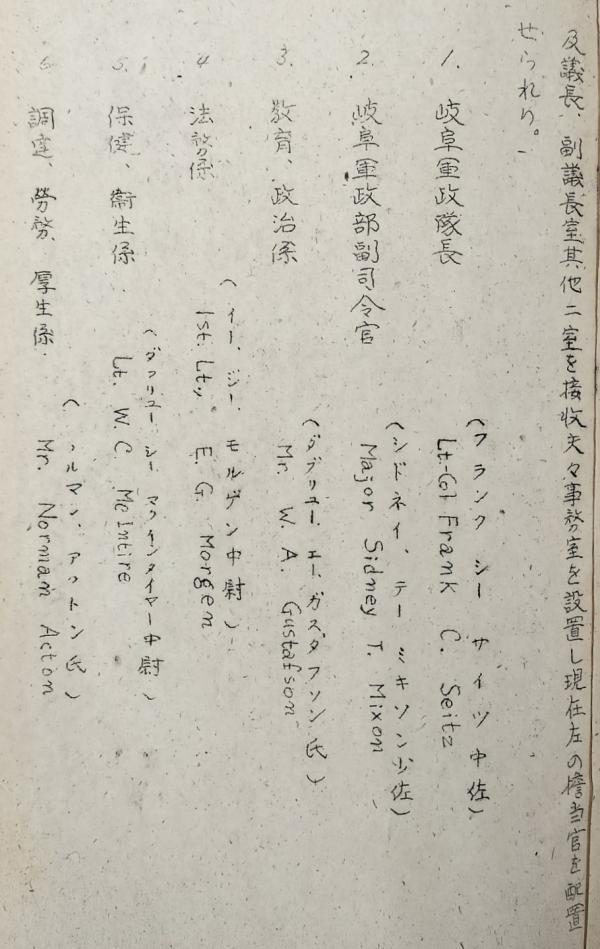 及議長、副議長室其他二室を接收夫々事務室を設置し現在左の擔当官を配置
せられり。
1. 岐阜軍政隊長
(フランク シー サイツ中佐)
Lt-Col Frank C. Seitz
2. 岐阜軍政部副司令官
(シドネイ、テー ミキソン少佐)
Major Sidney T. Mixon
3. 教育、政治係
(ダブリユー、エー、ガスタフソン氏)
Mr. W. A. Gustafson
4 法務係
(イー、ジー、モルゲン中尉)
1st. Lt., E. G. Morgem
5. 保健、衞生係
(ダブリユー シー マクインタイマー中尉)
Lt. W. C. Mc Intire
6 調達、勞務、厚生係.
(ノルマン、アクトン氏)
Mr. Norman Acton